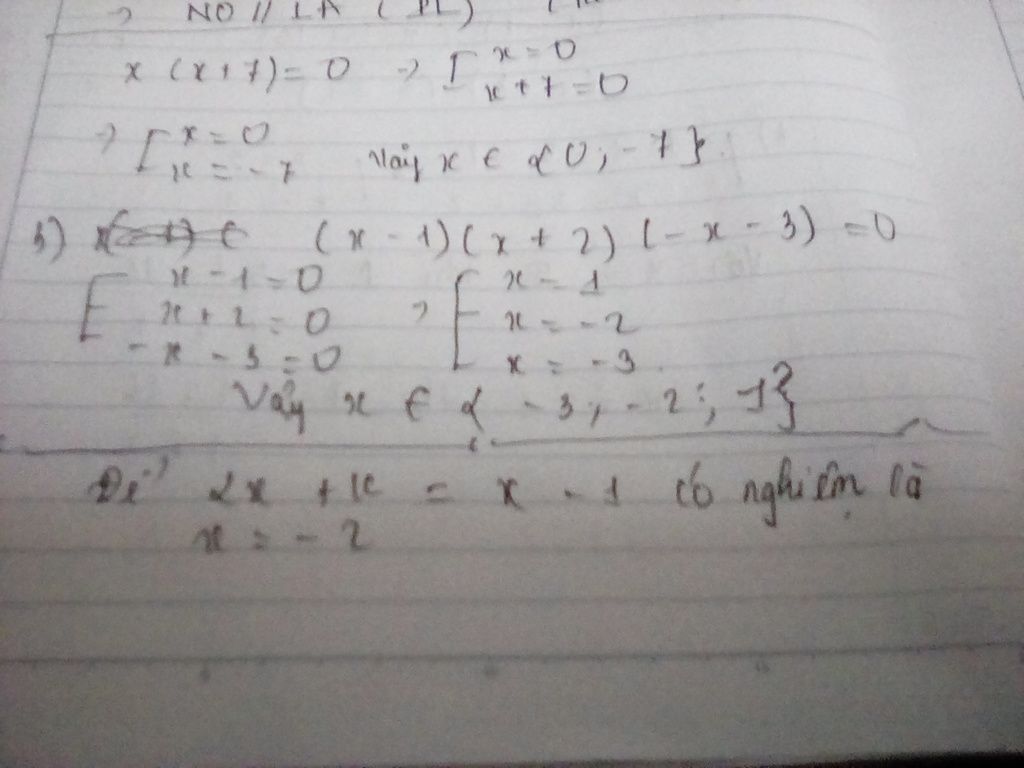 → NO // IA (
x (x+7) = 0 → [ x = 0
x + 7 = 0
→ [ x = 0
x = - 7 Vậy x ∈ { 0 ; - 7 }.
(x - 1) (x + 2) (- x - 3) = 0
[ x - 1 = 0 → [ x = 1
x + 2 = 0 x = - 2
- x - 3 = 0 x = - 3.
Vậy x ∈ { - 3 ; - 2 ; 1 }
Để 2x + k = x - 1 có nghiệm là
x = - 2